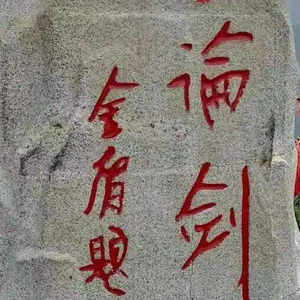 論剑
金庸题